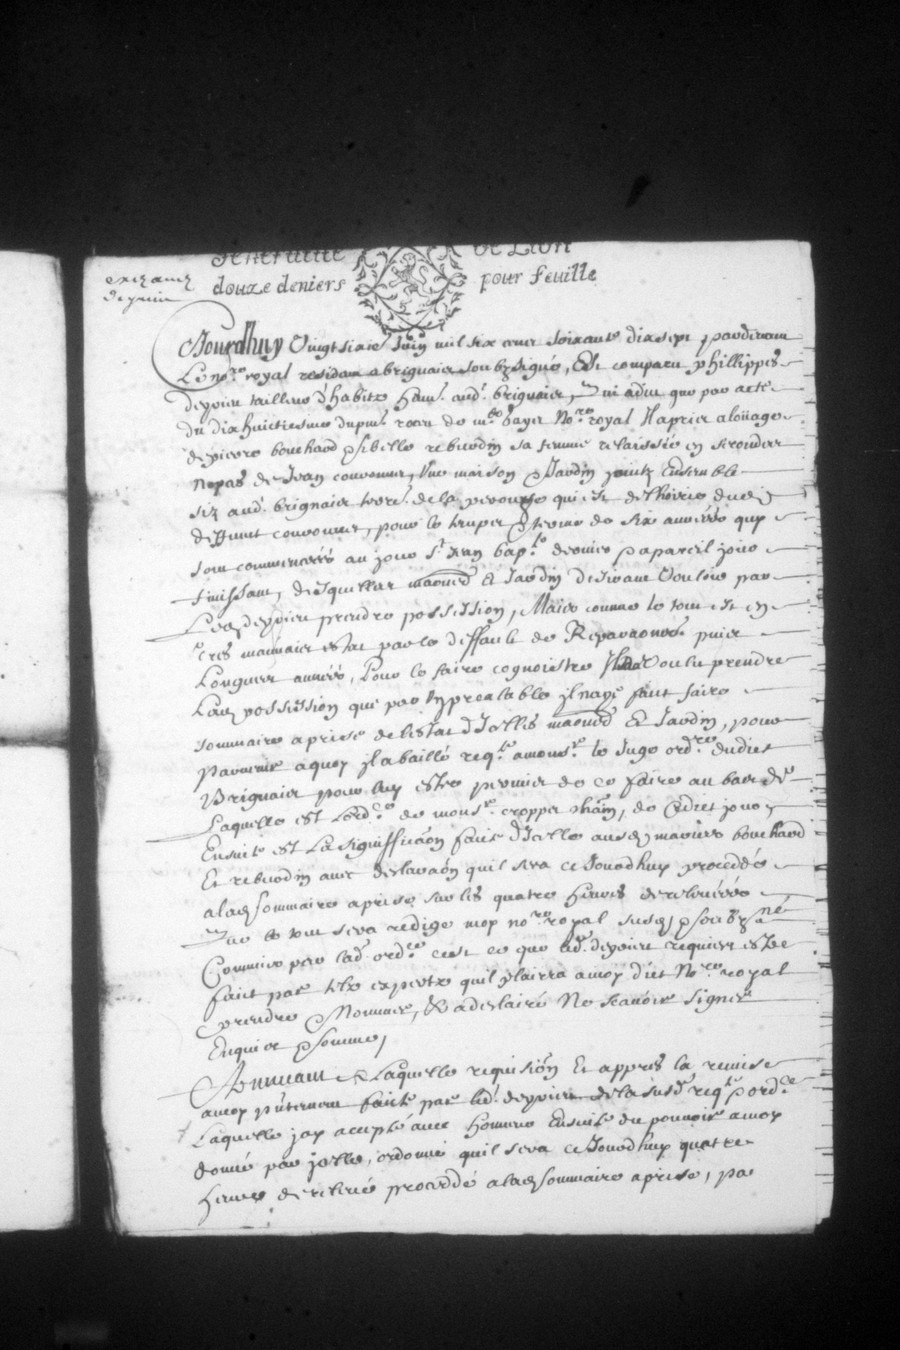 Generalité de Lion
douze deniers pour feuille
Jourdhuy Vingtsixie Juin mil six cens soixante dix sept pardevant
Le no.re royal residant a brignais soubzsigné, Est comparu phillippes
deyrieu tailleur d'habitz hant. aud. brignais, qui a dict que par acte
du dix huictiesme du pnt. receu de m.e bayer No.re royal Il a pris a loüage
de pierre bouchard & sibille rebuodin sa femme relaissée en secondes
nopces de Jean couvonnier, Une maison & Jardin joinctz Ensemble
siz aud. brignais
deffunct couvonnier, pour le temps & terme de six années quy
sont commencéés au jour S.t Jean bap.te dernier & a pareil jour
finissant, desquelles maison Et Jardin desirant Vouloir par
Led. deyrieu prendre possession, Mais comme le tout est en
tres mauvais estat par le deffault de Reparaons. puis
Longues années, Pour le faire cognoistre Il n'a voulu prendre
Lad. possession que par un prealable il n'aye faict faire
sommaire aprise de l'estat d'Icelles maison Et Jardin, pour
parvenir a quoy Il a baillé req.te a mons.r le Juge ord.re dudict
Brignais pour luy estre permis de ce faire au bas de
Laquelle est L'ord.ce de mons.r cropper chatn, de Cedict jour,
Ensuite est La signiffica͠on faite d'Icelle ausd. mariés bouchard
Et rebuodin avec declara͠on qu'il sera ce Jourdhuy procédé
a lad. sommaire aprise sur les quatre heures de relevéé
Que le tout sera redigé moy no.re royal susd. & soubz.né
Commis par lad. ord.ce c'est ce que led. deyrieu requiert estre
faict par telz expertz qu'il plairra a moy dict No.re royal
prendre & Nommer, & a declairé Ne scavoir signer
Enquis & sommé,
Suivant Laquelle requisi͠on Et appres la remise
a moy p͠ntement faite par led. deyrieu de la susd. req.te & ord.ce
Laquelle jay acepté avec honneur Ensuite du pouvoir a moy
donné par jcelle, ordonné qu'il sera ce Jourdhuy quatre
heures de relevée procédé a lad. sommaire aprise, par